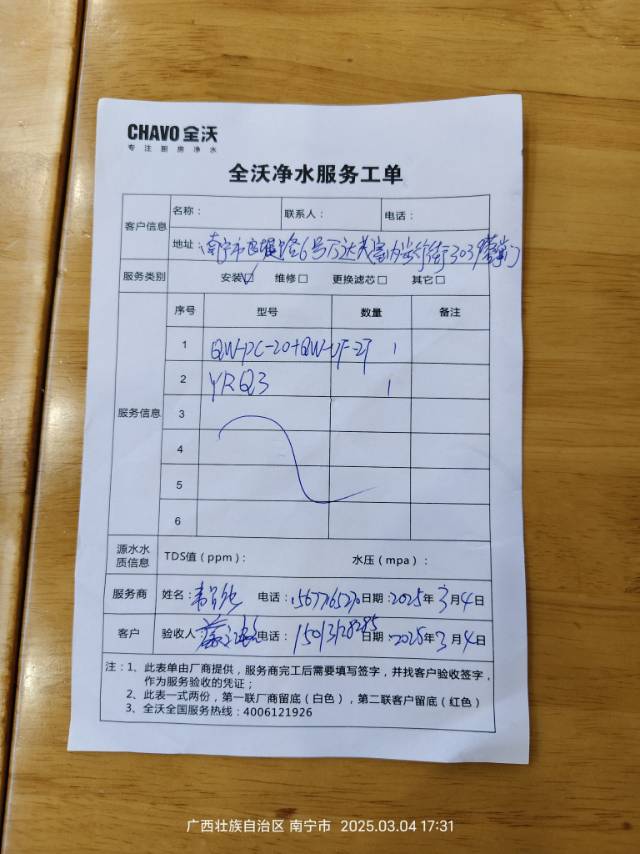 CHAVO 全沃
专注厨房净水
全沃净水服务工单
客户信息 名称： 联系人： 电话：
地址：南宁市邕堤路6号万达茂室内步行街303
服务类别 安装☑ 维修□ 更换滤芯□ 其它□
服务信息 序号 型号 数量 备注
1 QW-PC-20+QW-UF-2F 1
2 YRQ3 1
3
4
5
6
源水水质信息 TDS值（ppm）： 水压（mpa）：
服务商 姓名： 电话： 日期：2025年3月4日
客户 验收人 电话：15013128285 日期：2025年3月4日
注：1、此表单由厂商提供，服务商完工后需要填写签字，并找客户验收签字，
作为服务验收的凭证；
2、此表一式两份，第一联厂商留底（白色），第二联客户留底（红色）
3、全沃全国服务热线：4006121926
广西壮族自治区 南宁市 2025.03.04 17:31